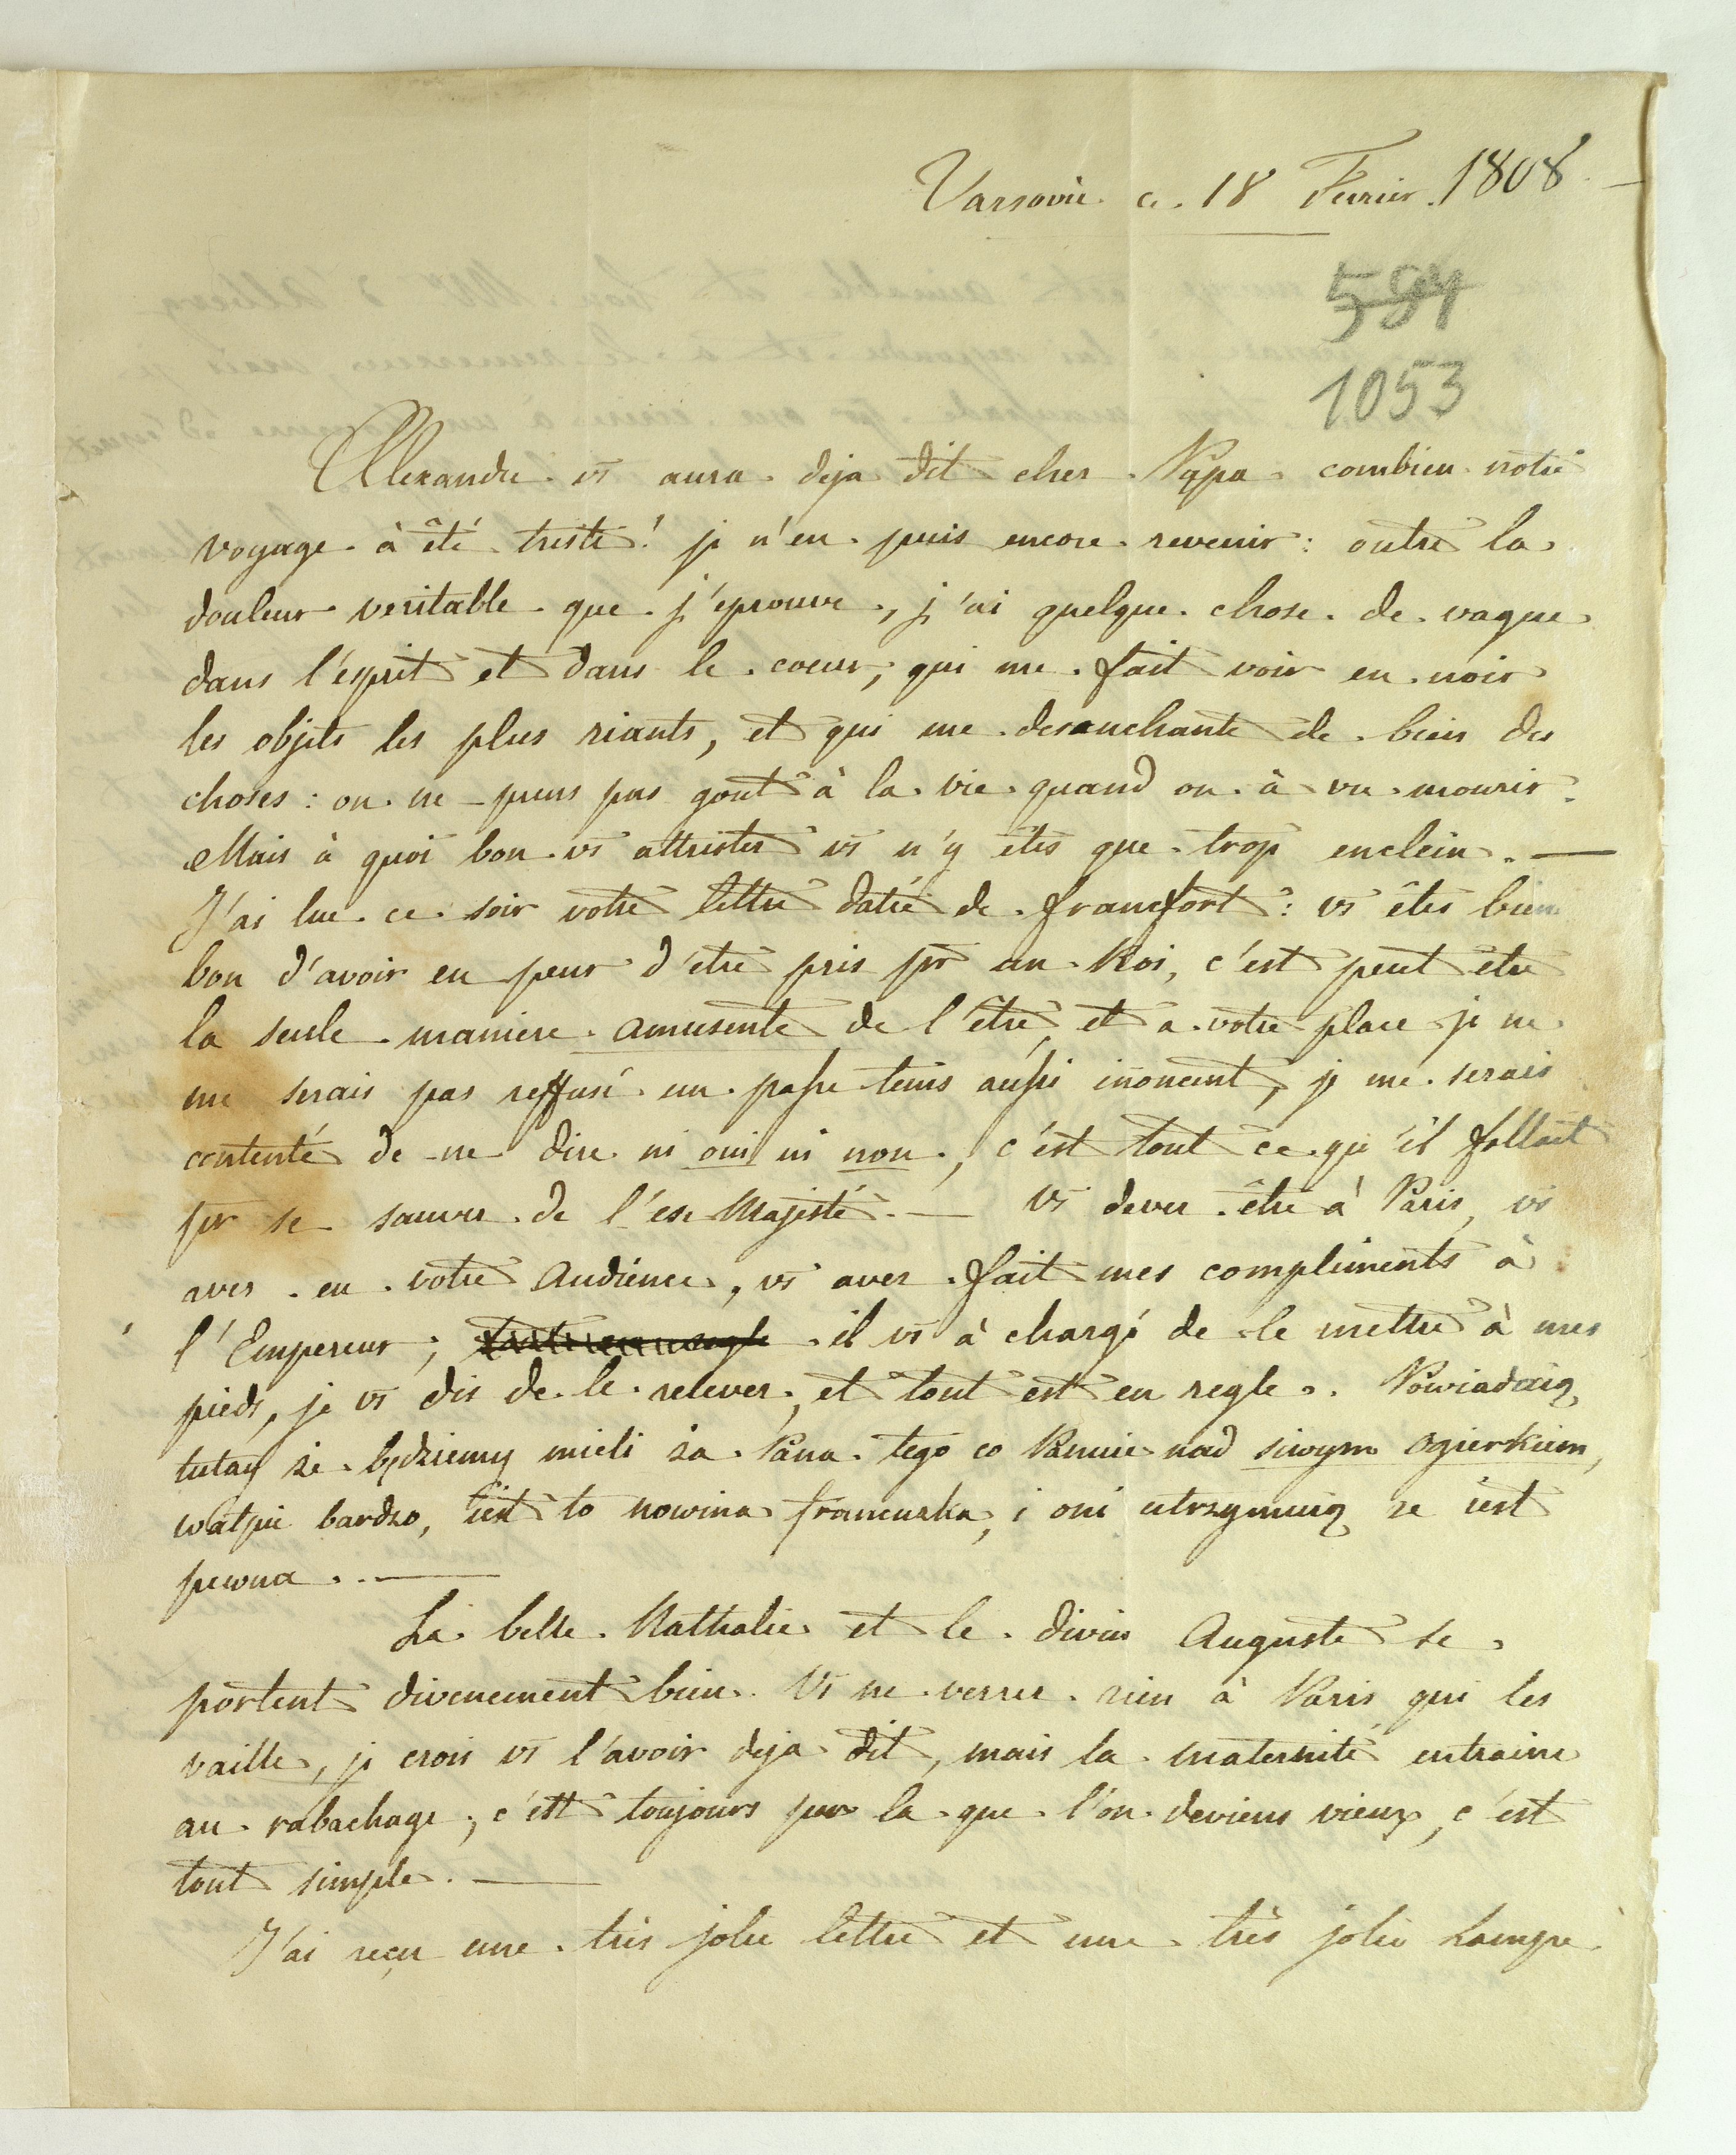 Varsovie ce 18 Fevrier 1808
584
1053
Alexandre vs aura deja dit cher Papa combien notre
voyage à été triste! je n'en puis encore revenir: outre la
douleur veritable que j'eprouve, j'ai quelque chose de vague
dans l'ésprit et dans le coeur, qui me fait voir en noir
les objets les plus riants, et qui me desenchante de bien des
choses: on ne prens pas gout à la vie quand on à vu mourir.
Mais à quoi bon vs attrister vs n'y étes que trop enclein. —
J'ai lue ce soir votre lettre datée de francfort: vs êtes bien
bon d'avoir eu peur d'etre pris pr un Roi, c'est peut etre
la seule maniere amusente de l'être, et a votre place je ne
me serais pas reffusé un passe tems aussi inonent, je me serais
contenté de ne dire ni oui ni non, c'est tout ce qu'il fallait
pr se sauver de l'ése Majesté. — Vs devez être à Paris, vs
avez eu votre Audience, vs avez fait mes compliments à
l'Empereur; il vs à chargé de le mettre à mes
pieds, je vs dis de le relever, et tout est en regle. Powiadaią
tutay że będziemy mieli za Pana tego co Panuie nad siwym Ogierkiem,
wątpie bardzo, iest to nowina francuska, i oni utrzymuią ze iest
pewna. —
La belle Nathalie et le divin Auguste se
portent divenement bien. Vs ne verrez rien à Paris qui les
vaille, je crois vs l'avoir deja dit, mais la maternité entraine
au rabachage; c'est toujours par la que l'on deviens vieux, c'est
tout simple. —
J'ai reçu une très jolie lettre et une très jolie Lampe